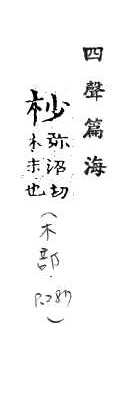 四聲篇海
杪弥沼切
木末也
(木部.P.287)